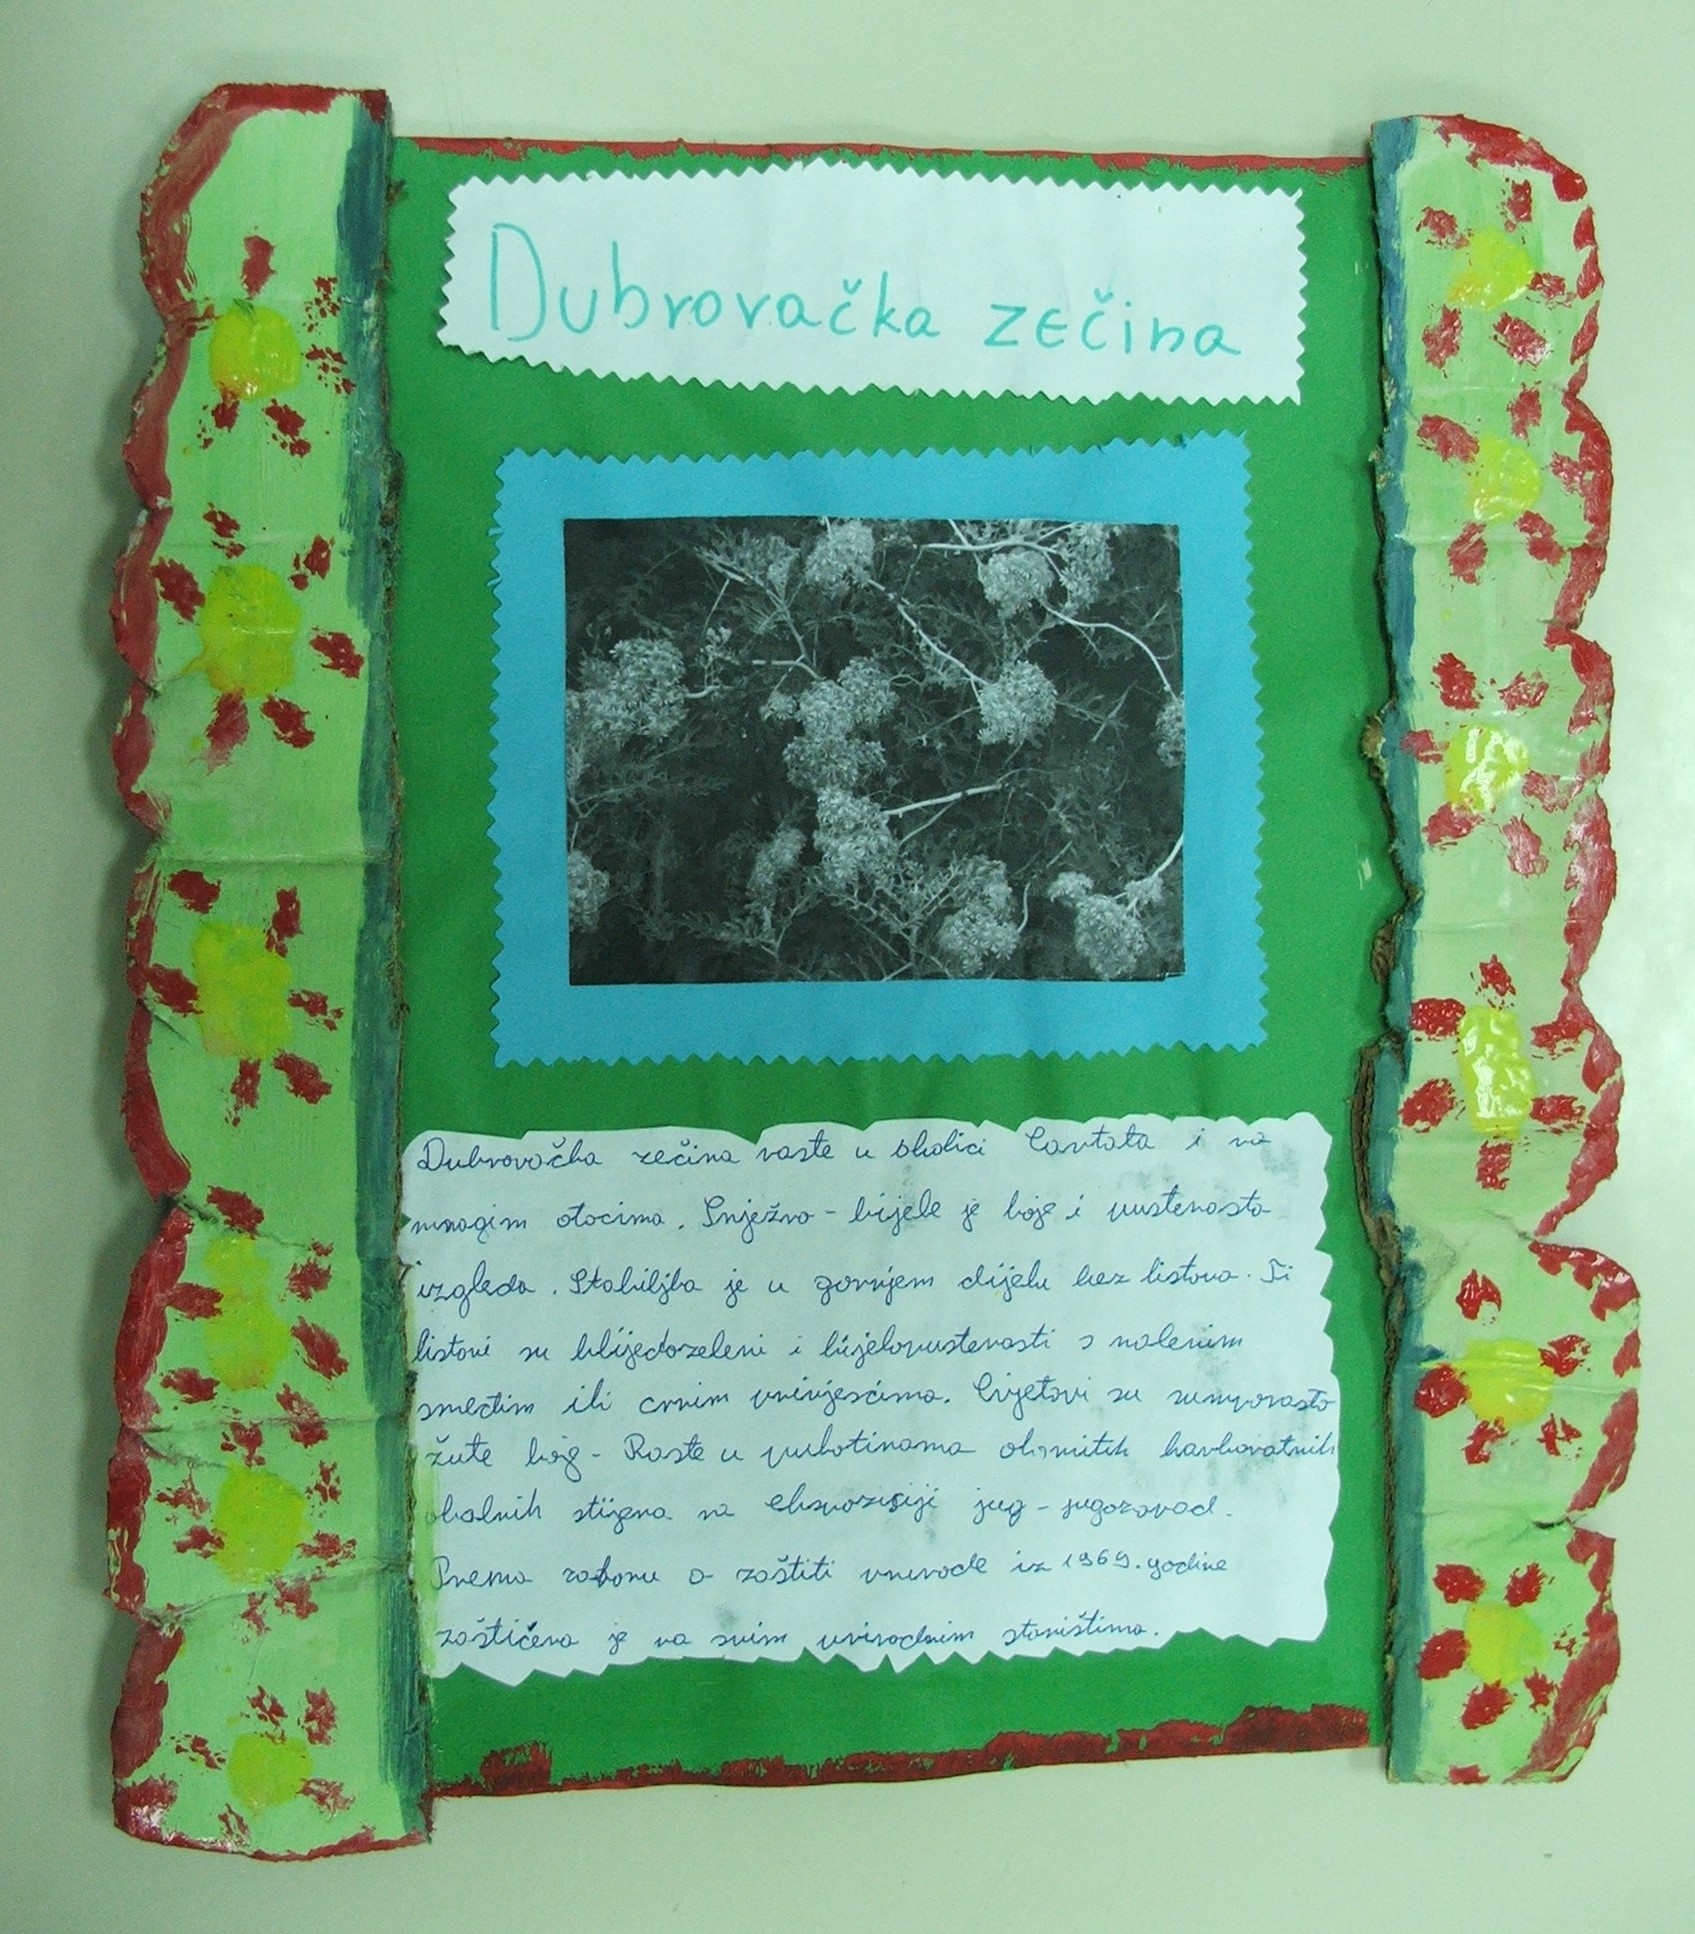 Dubrovačka zečina
Dubrovačka zečina raste u okolici Cavtata i na
mnogim otocima. Snježno-bijele je boje i pustenasta
izgleda. Stabiljka je u gornjem dijelu bez listova. Ti
listovi su blijedozeleni i bijelopustenasti s malenim
smeđim ili crnim privjescima. Cvjetovi su sumporasto
žute boje - Raste u pukotinama okomitih karbonatnih
obalnih stijena na ekspoziciji jug - jugozapad.
Prema zakonu o zaštiti prirode iz 1969. godine
zaštićena je na svim prirodnim staništima.